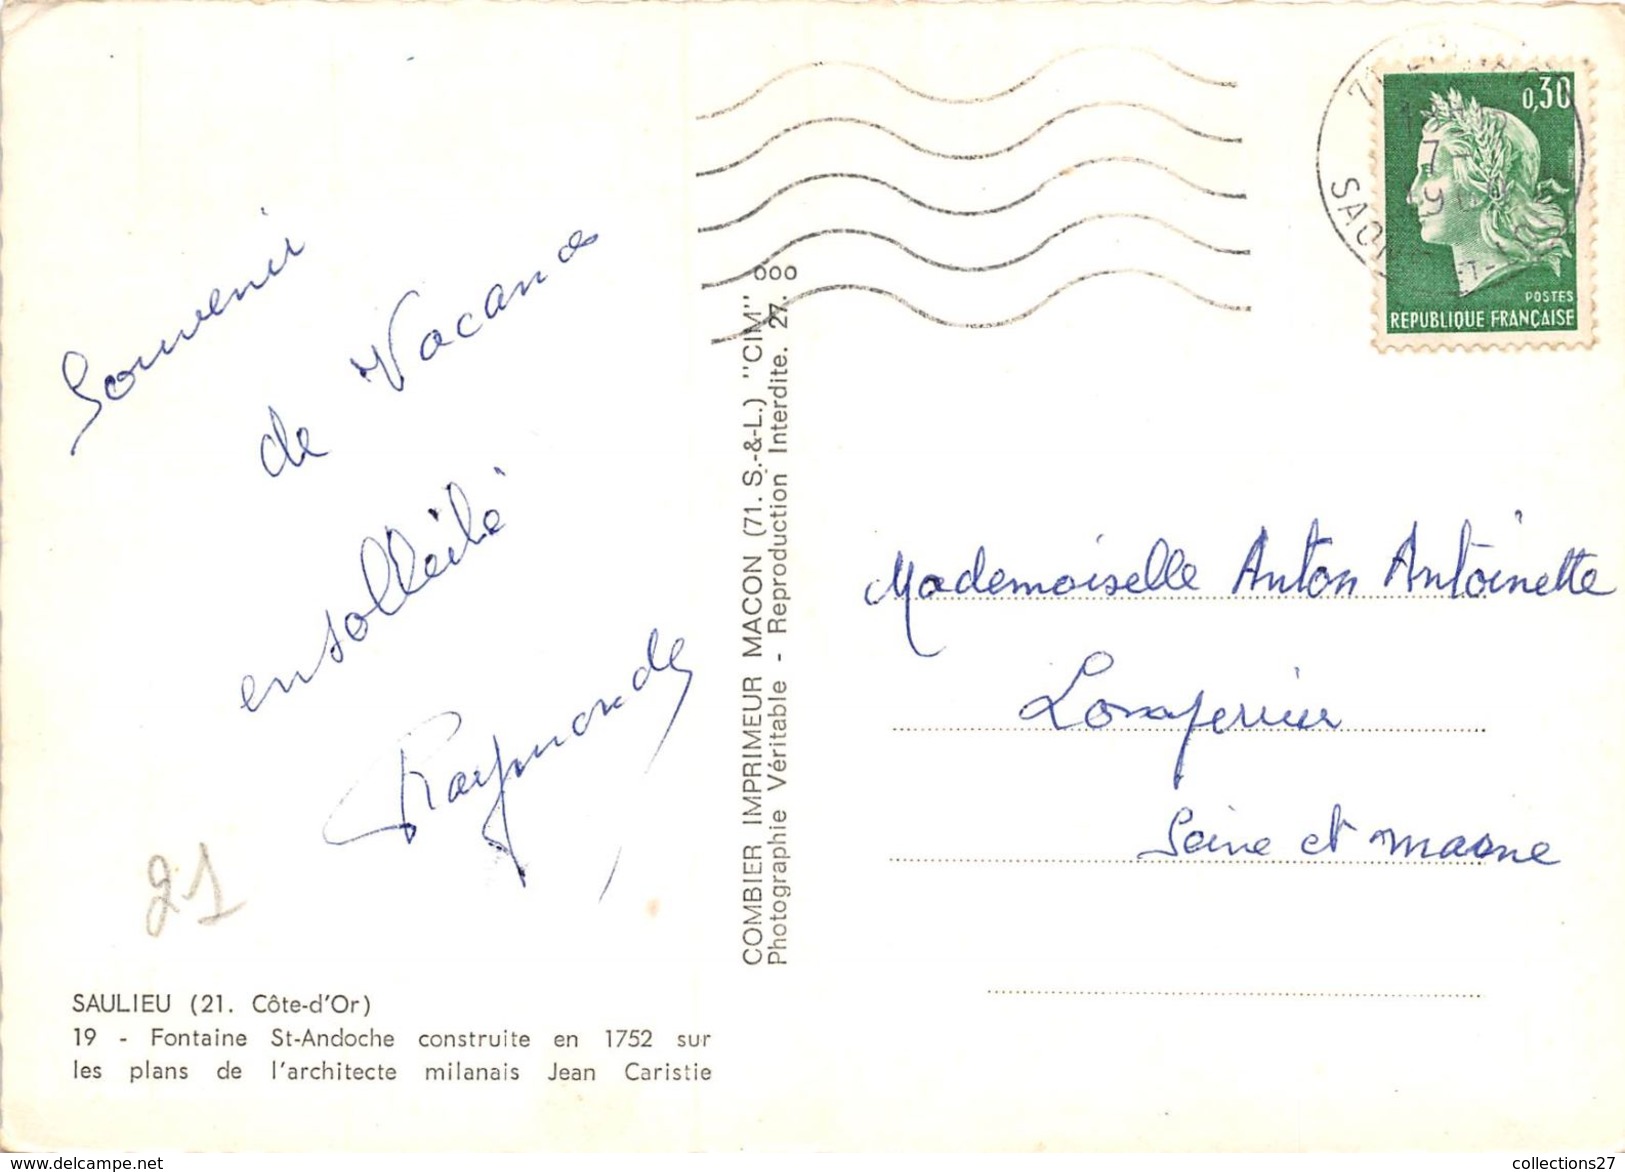 Souvenir
de Vacance
ensolleilé
Raymonde
21
SAULIEU (21. Côte-d'Or)
19 - Fontaine St-Andoche construite en 1752 sur
les plans de l'architecte milanais Jean Caristie
COMBIER IMPRIMEUR MACON (71. S.-&-L.) "CIM"
Photographie Véritable - Reproduction Interdite. 27.
000
0,30
POSTES
REPUBLIQUE FRANÇAISE
Mademoiselle Anton Antoinette
Longperrier
Seine et Marne
collections27